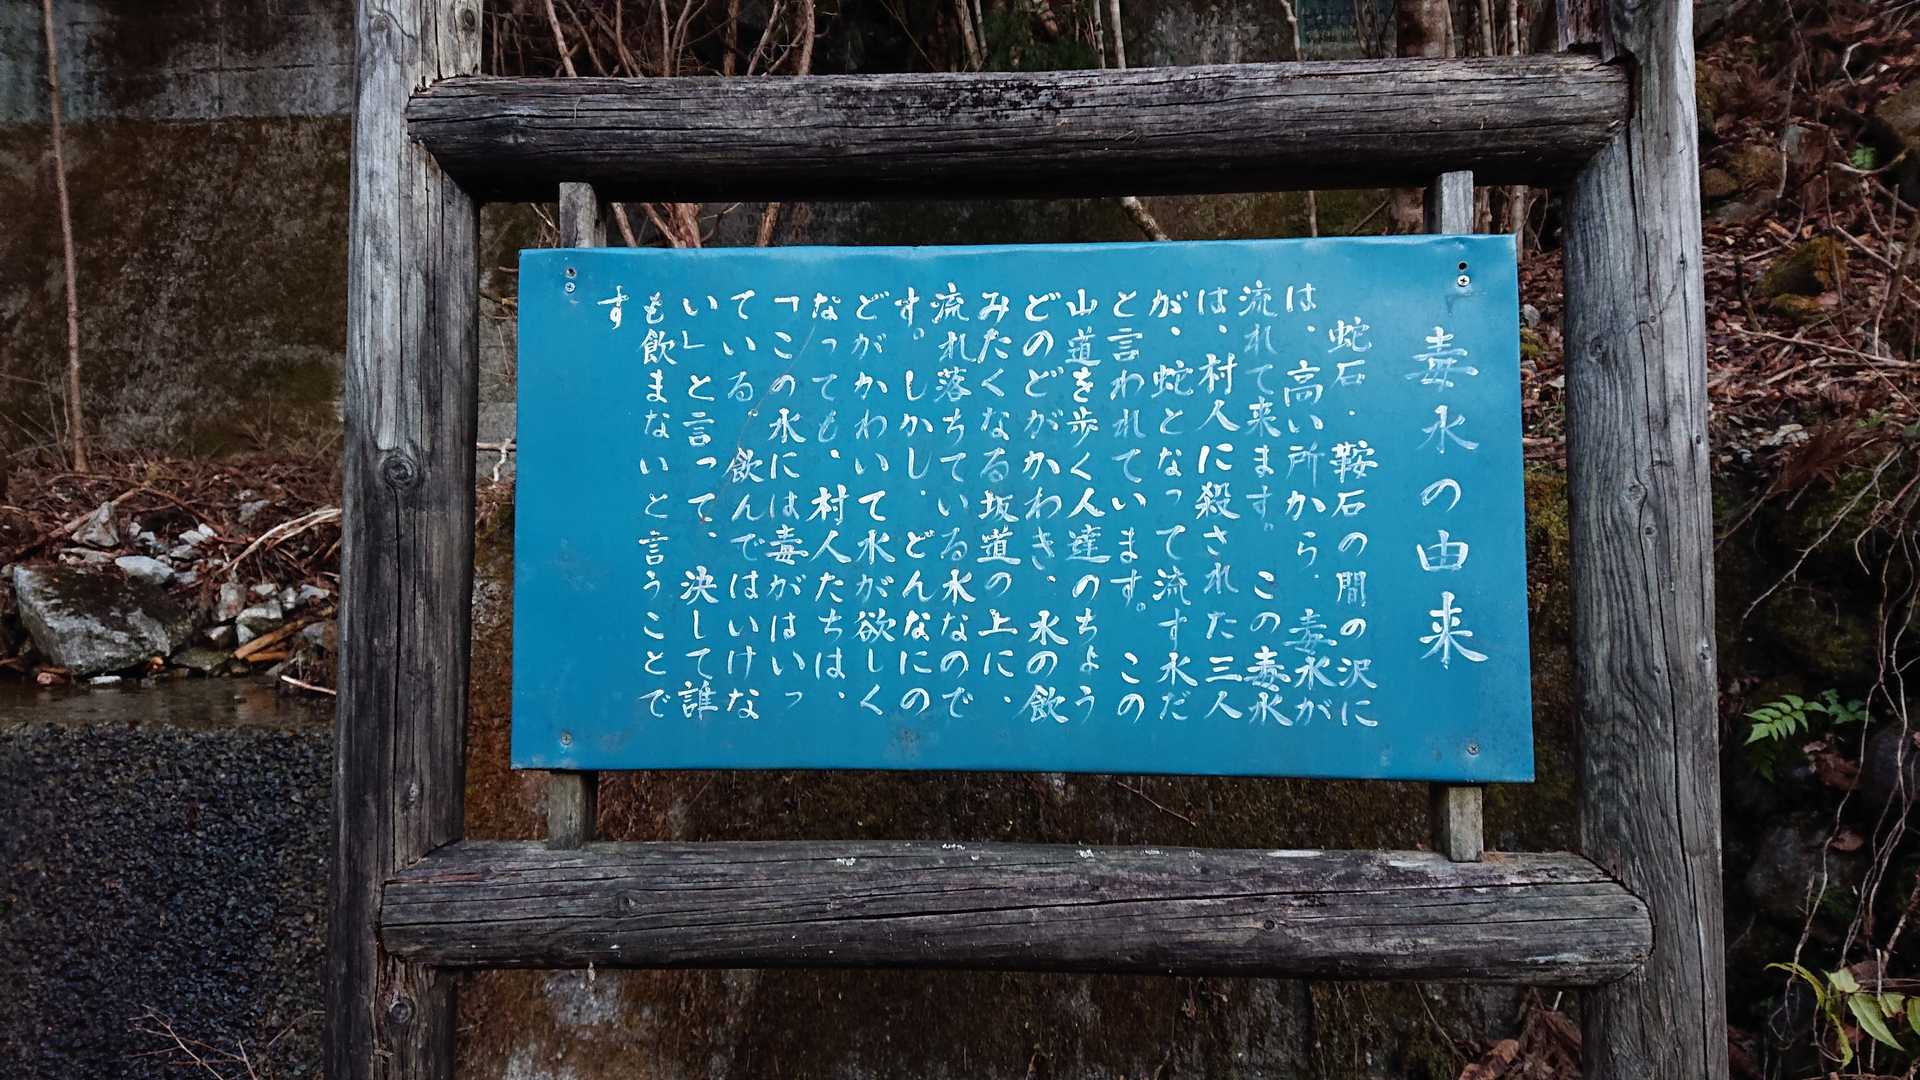 毒水の由来
蛇石、鞍石の間の沢に
は、高い所から、毒水が
流れて来ます。この毒水
は、村人に殺された三人
が、蛇となって流す水だ
と言われています。この
山道を歩く人達のちょう
どのどがかわき、水の飲
みたくなる坂道の上に、
流れ落ちている水なので
す。しかし、どんなにの
どがかわいて水が欲しく
なっても、村人たちは、
「この水には毒がはいっ
ている飲んではいけな
い」と言って、決して誰
も飲まないと言うことで
す